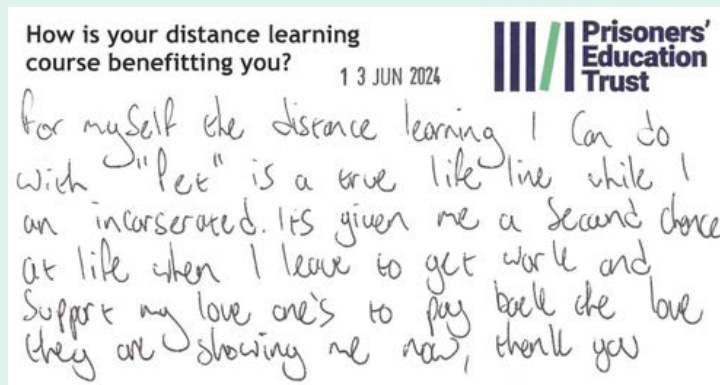 How is your distance learning
course benefitting you?
13 JUN 2024
Prisoners'
Education
Trust
For myself the distance learning I can do
with "Pet" is a true life line while I
am incarserated. Its given me a second chance
at life when I leave to get work and
support my love one's to pay back the love
they are showing me now, thank you